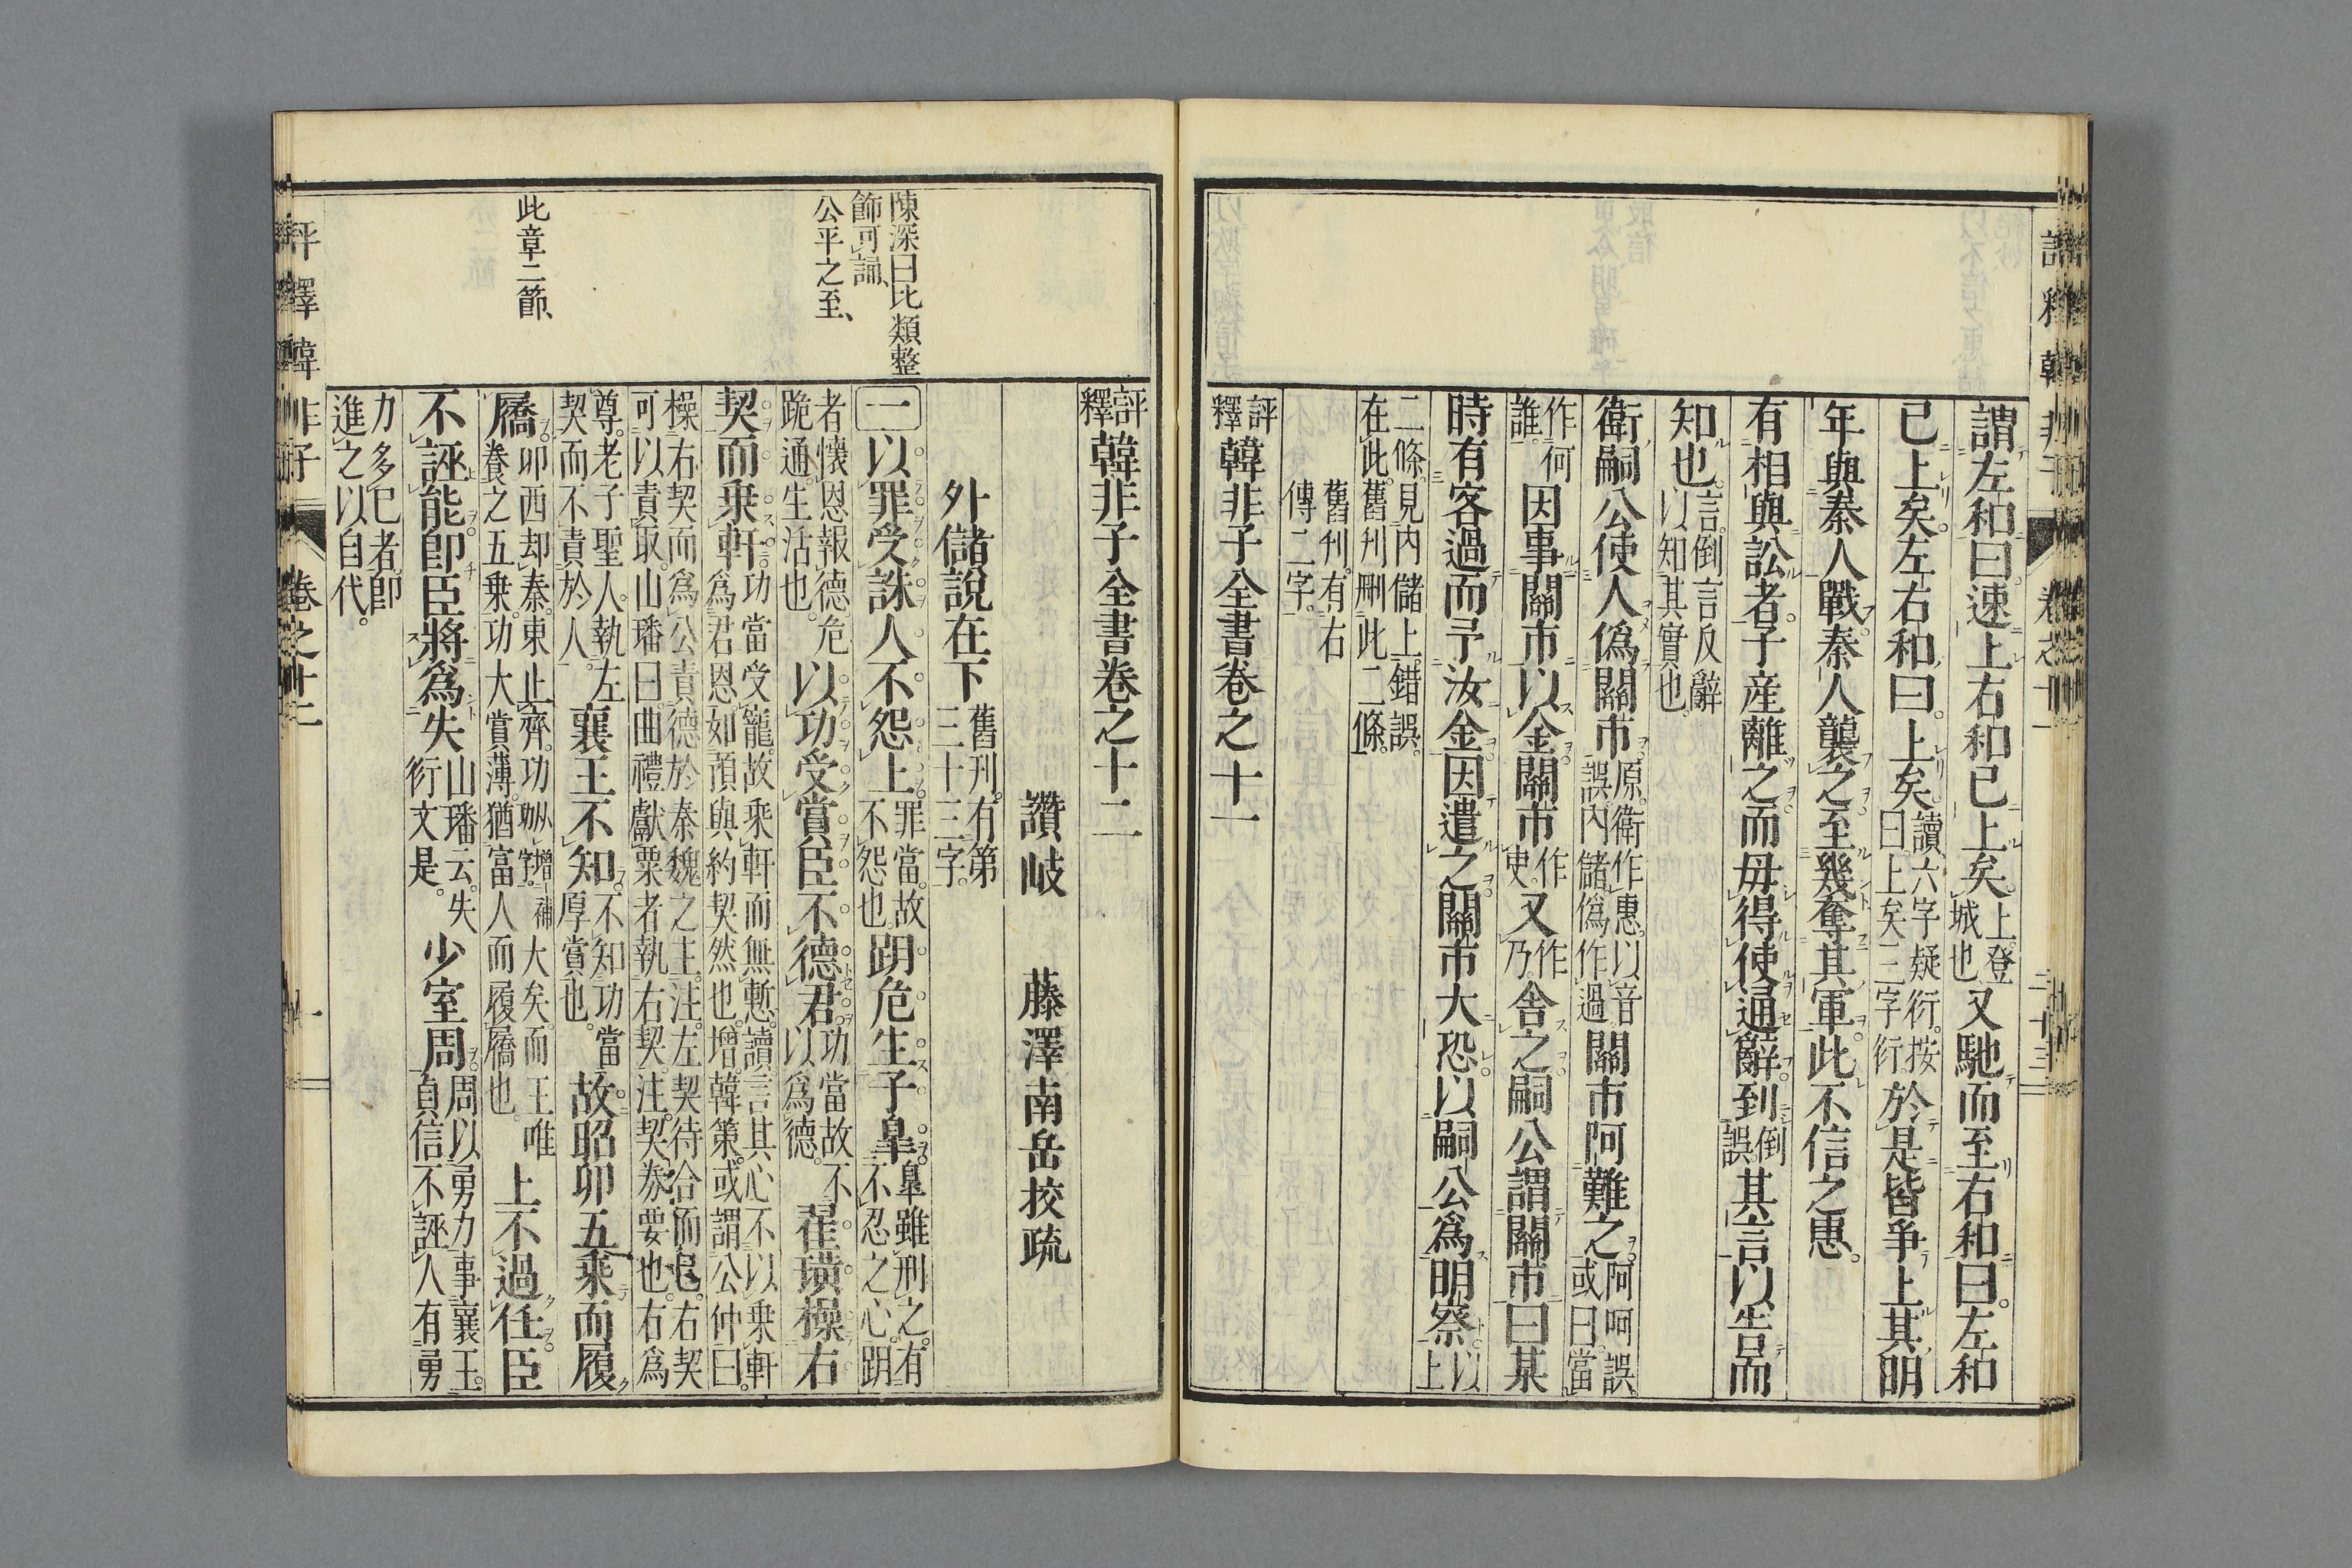 謂左和曰速上右和已上矣上登城也又馳而至右和曰左和
已上矣左右和曰上矣讀六字疑衍按曰上矣三字衍於是皆爭上其明
年與秦人戰秦人襲之至幾奪其軍此不信之患
有相與訟者子産離之而毋得使通辭到倒誤其言以告而
知也言倒言反辭以知其實也
衛嗣公使人僞關市原衛作惠以音誤內儲僞作過關市呵難之阿呵誤或曰當
作何誰因事關市以金關市作吏又作乃舍之嗣公謂關市曰某
時有客過而予汝金因遣之關市大恐以嗣公爲明察以上
二條見內儲上錯誤在此舊刊刪此二條
舊刊有右傳二字
評釋韓非子全書卷之十一
評釋韓非子全書卷之十二
讚岐 藤澤南岳挍疏
外儲說左下舊刊有第三十三字
一以罪受誅人不怨上罪當故不怨也跀危生子皐皐雖刑之有不忍之心跀
者懷恩報德危跪通生活也以功受賞臣不德君功當故不以爲德翟璜操右
契而乗軒功當受寵故乘軒而無慙讀言其心不以乗軒爲君恩如預與約契然也增韓策或謂公仲曰
操右契而爲公責德於秦魏之主注左契待合而已右契可以責取山璠曰曲禮獻粟者執右契注契券要也右爲
尊老子聖人執左契而不責於人襄王不知不知功當厚賞也故昭卯五乘而履
屩卯西却秦東止齊功𦕅增補字大矣而王唯養之五乗功大賞薄猶富人而履屩也上不過任臣
不誣能卽臣將爲失山璠云失衍文是少室周周以勇力事襄王貞信不誣人有勇
力多已者卽進之以自代
陳深曰比類整
飾可誦
公平之至
此章二節
評釋韓非子 卷之十二 一